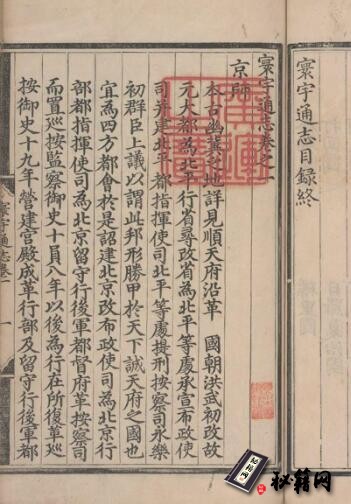 寰宇通志目録終
寰宇通志卷之一
京師
本古幽薊之地詳見順天府沿革　國朝洪武初改故
元大都為北平行省尋改省為北平等處承宣布政使
司并建北平都指揮使司北平等處提刑按察司永樂
初群臣上議以謂此邦形勝甲於天下誠天府之國也
宜為四方都會於是詔建北京改布政使司為北京行
部都指揮使司為北京留守行後軍都督府革按察司
而置巡按監察御史十員八年以後為行在所復革巡
按御史十九年營建宮殿成革行部及留守行後軍都
寰宇通志卷一
一
秘籍网